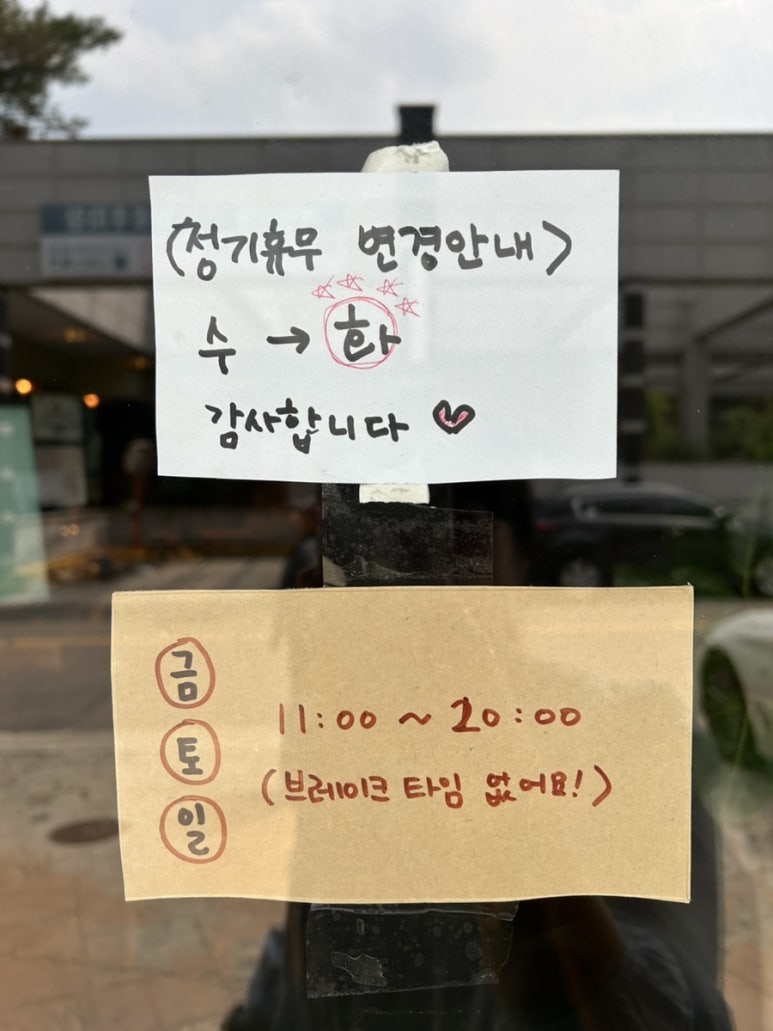 <정기휴무 변경안내>
수 → 화
감사합니다 ♥
금
토
일
11:00 ~ 20:00
(브레이크 타임 없어요!)